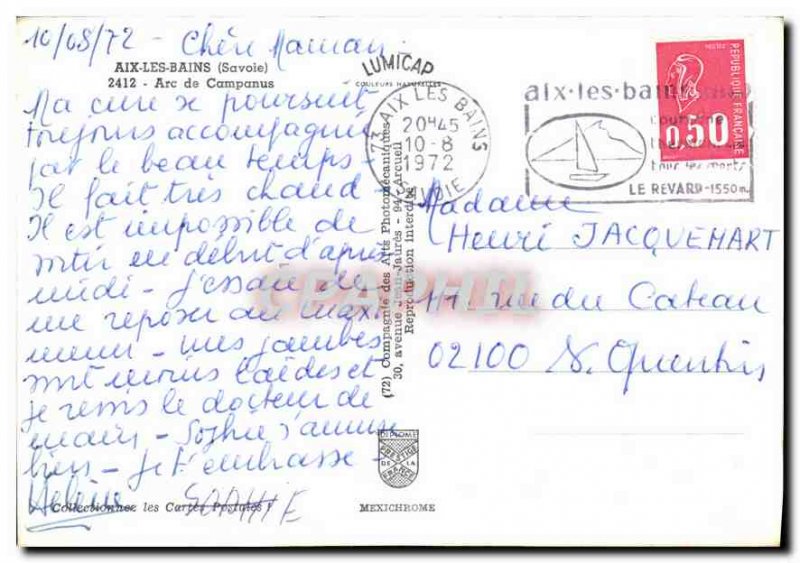 10/08/72 - Chère Maman,
AIX-LES-BAINS (Savoie)
2412 - Arc de Campanus
Ma cure se poursuit
toujours accompagnée
par le beau temps -
Il fait très chaud -
Il est impossible de
sortir en début d'après
midi - J'essaie de
me reposer au maxi
mum - mes jambes
sont moins raides et
je revois le docteur
Sophie s'amuse
bien - Je t'embrasse -
SOPHIE
Collectionnez les Cartes Postales !
LUMICAP
COULEURS NATURELLES
73 AIX LES BAINS
20H45
10-8
1972
SAVOIE
aix-les-bains
LE REVARD-1550m.
POSTES
RÉPUBLIQUE FRANÇAISE
0,50
(72) Compagnie des Arts Photomécaniques
30, avenue Jean-Jaurès - 94-Arcueil
Reproduction interdite
Madame
Henri JACQUEMART
rue du Cateau
02100 St Quentin
DIPLOME
PRESTIGE
DE LA
FRANCE
MEXICHROME
CPAPHIL